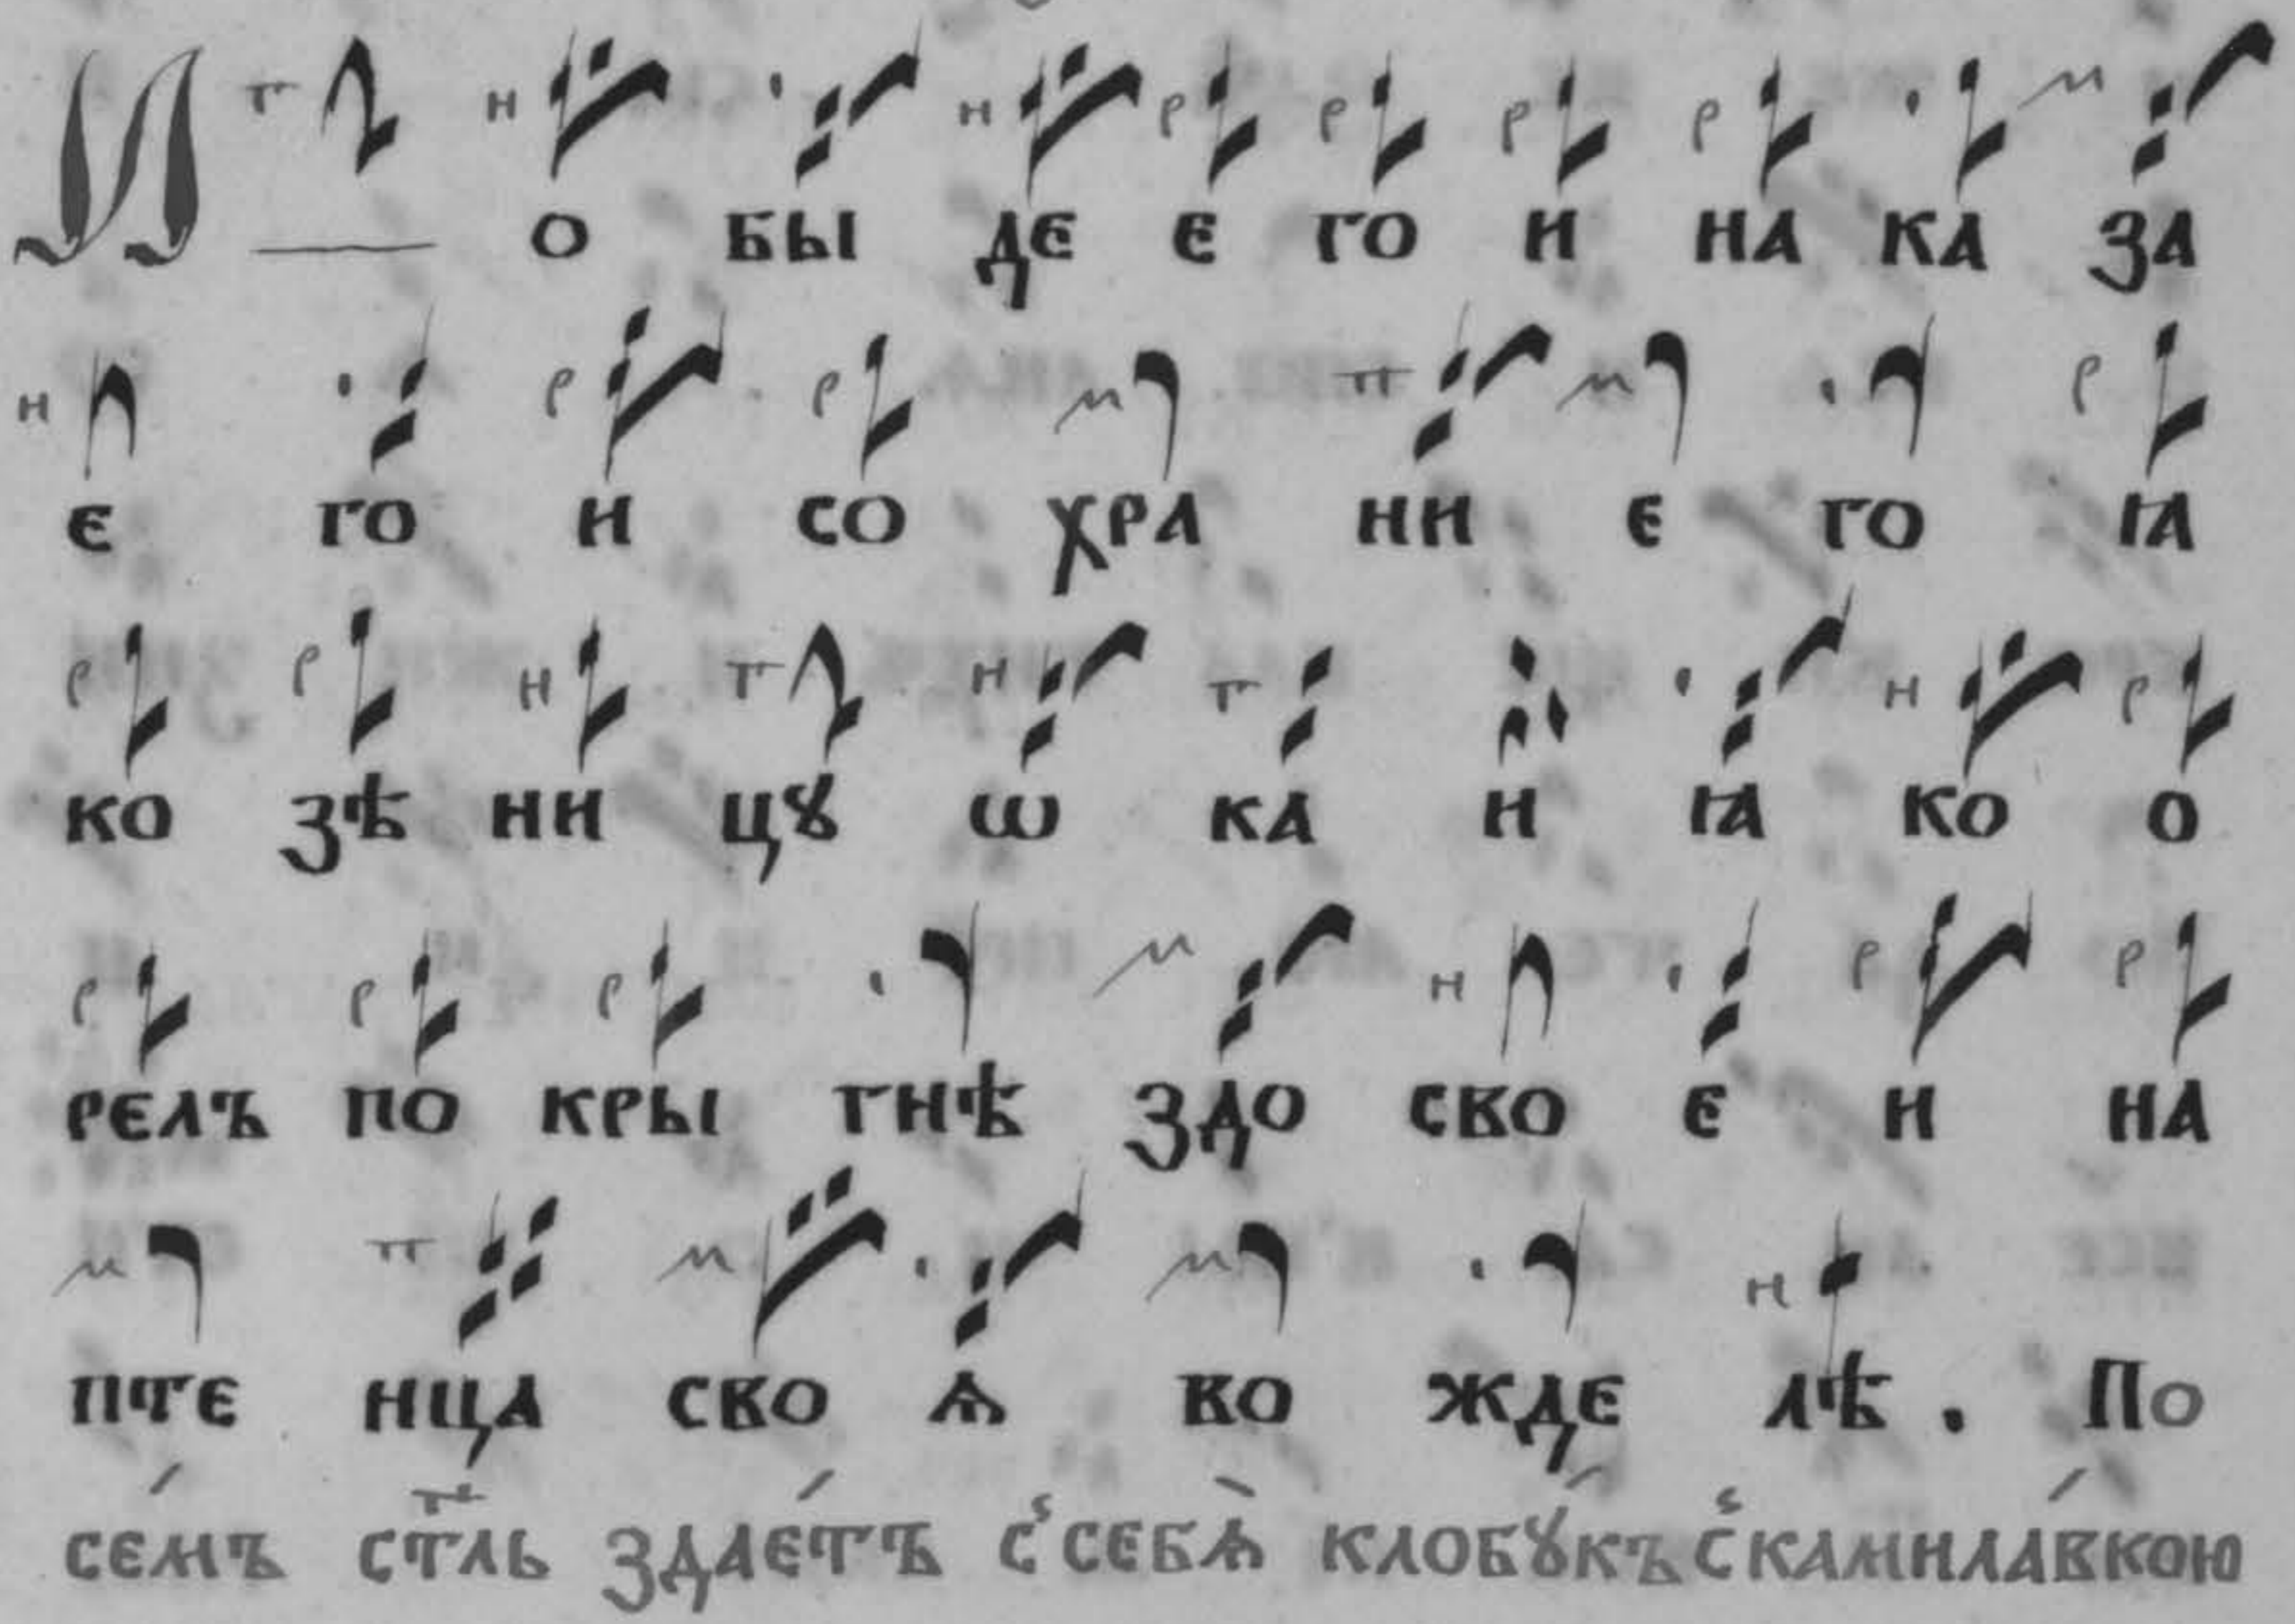 И о бы де є го и на ка за
є го и со хра ни є го ꙗ
ко зѣ ни цꙋ ѡ ка и ꙗ ко о
релъ по кры гнѣ здо сво є и на
пте нца сво ѧ во жде лѣ . По
се́мъ ст҃ль здае́тъ с̾ себѧ̀ клобꙋ́къ с̾ камила́вкою